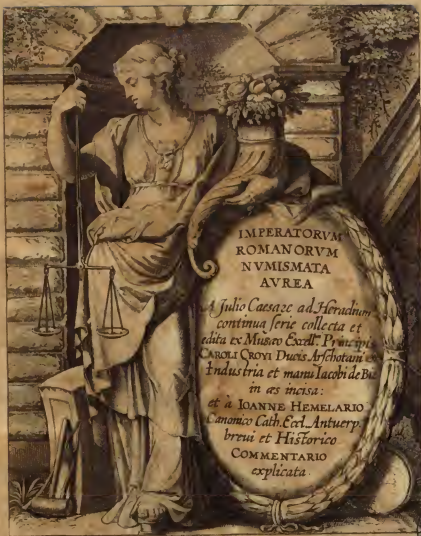 IMPERATORVM
ROMANORVM
NVMISMATA
AVREA
A Julio Caesare ad Heraclium
continua serie collecta et
edita ex Musaeo Excell.
CAROLI CROYI Ducis Arschotani
Industria et manu Iacobi de Bie
in æs incisa:
et à IOANNE HEMELARIO
Canonico Cath. Eccl. Antuerp.
brevi et Historico
COMMENTARIO
explicata.